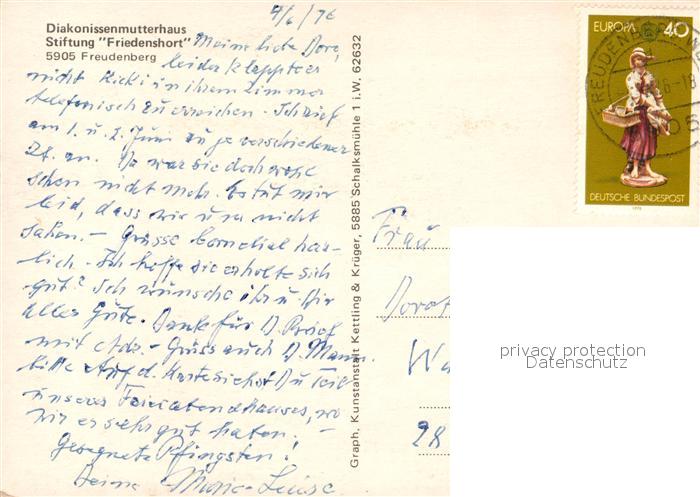 4/6/76
Diakonissenmutterhaus
Stiftung "Friedenshort"
5905 Freudenberg
Meine liebe Dore,
leider klappte es
nicht Kicki in ihrem Zimmer
telefonisch zu erreichen. Ich rief
am 1. u. 2. Juni zu je verschiedener
Zt. an. Da war sie doch wohl
schon nicht mehr. Es tut mir
leid, dass wir uns nicht
sahen. – Grüsse Cornelia herz-
lich. Ich hoffe sie erholte sich
gut? Ich wünsche ihr u. Dir
alles Gute. Dank für D. Brief
mit Adr. – Grüss auch D. Mann
bitte. Auf d. Karte siehst Du Teil
unseres Feierabendhauses, wo
wir es sehr gut haben! –
Gesegnete Pfingsten!
Deine Maria-Luise
Graph. Kunstanstalt Kettling & Krüger, 5885 Schalksmühle 1 i.W. 62632
EUROPA 40
DEUTSCHE BUNDESPOST
1976
FREUDENBERG
Frau
Dorot
Wa
28
privacy protection
Datenschutz